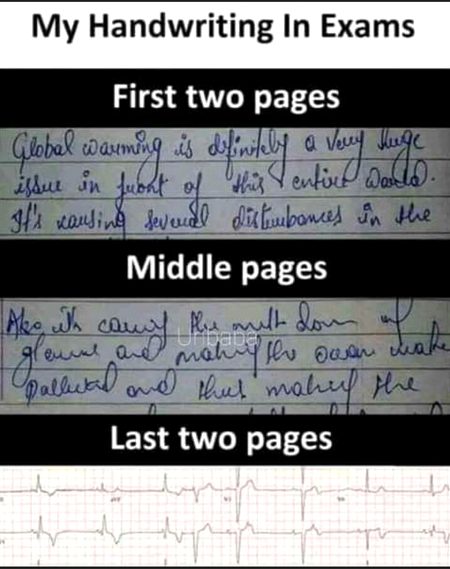 My Handwriting In Exams
First two pages
Global warming is definitely a very huge
issue in front of this entire world.
It's causing several disturbances in the
Middle pages
the melt down of
and making the ocean
and thus making the
Last two pages